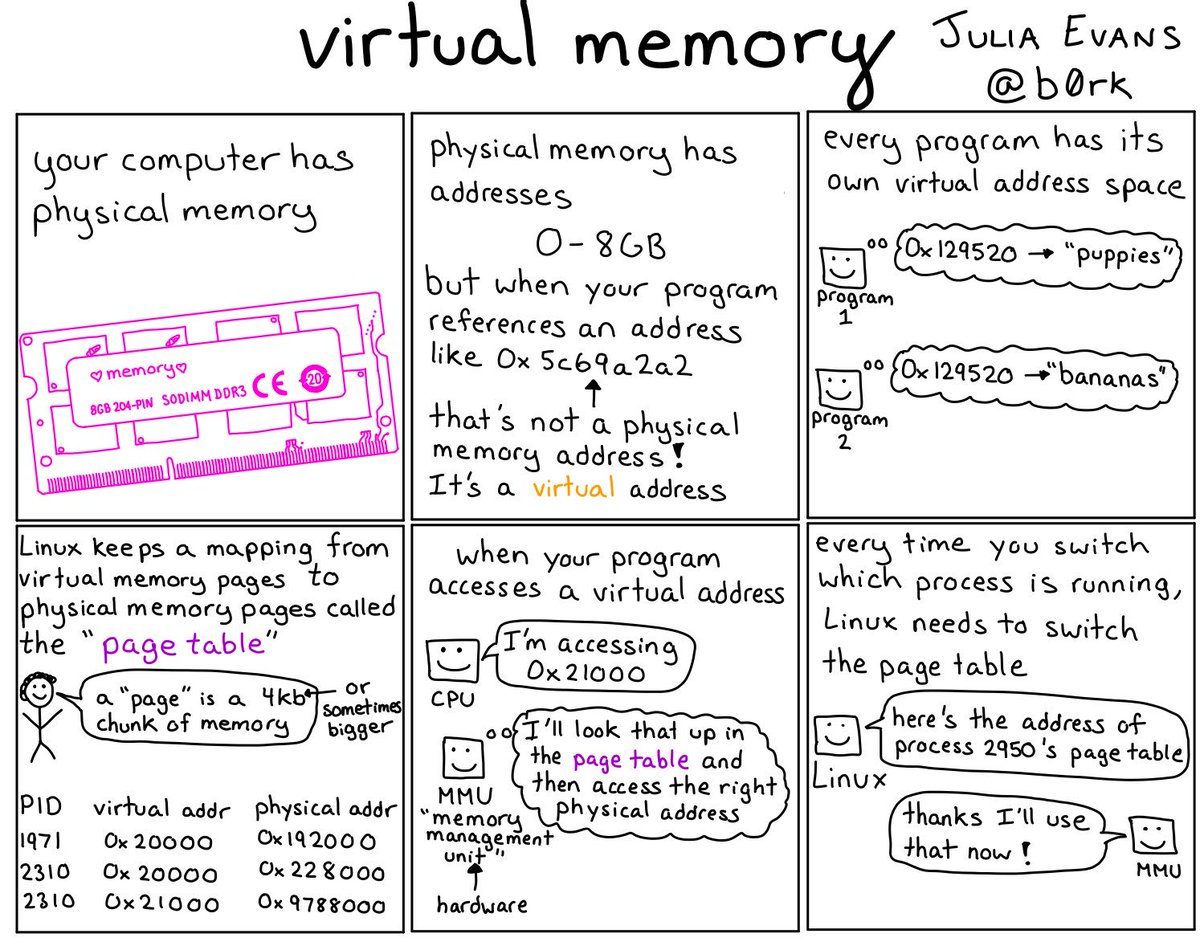 virtual memory
JULIA EVANS
@b0rk
your computer has
physical memory
♡memory♡
8GB 204-PIN SODIMM DDR3 CE 20
physical memory has
addresses
0-8GB
but when your program
references an address
like 0x5c69a2a2
that's not a physical
memory address!
It's a virtual address
every program has its
own virtual address space
0x129520 → "puppies"
program
1
0x129520 → "bananas"
program
2
Linux keeps a mapping from
virtual memory pages to
physical memory pages called
the "page table"
a "page" is a 4kb
chunk of memory
or
sometimes
bigger
PID virtual addr physical addr
1971 0x20000 0x192000
2310 0x20000 0x228000
2310 0x21000 0x9788000
when your program
accesses a virtual address
I'm accessing
0x21000
CPU
I'll look that up in
the page table and
then access the right
physical address
MMU
"memory
management
unit"
hardware
every time you switch
which process is running,
Linux needs to switch
the page table
here's the address of
process 2950's page table
Linux
thanks I'll use
that now!
MMU